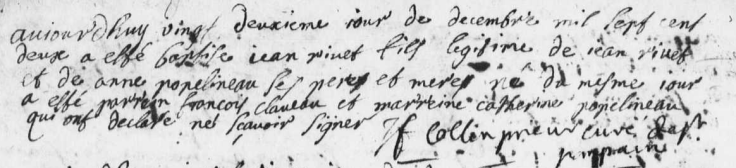 aujourdhuy vingt deuxieme iour de decembre mil sept cens
deux a esté baptisé iean rivet fils legitime de iean rivet
et de anne popelineau ses peres et meres né du mesme iour
a esté parrein francois claveau et marreine catherine popelineau
qui ont declaré ne scavoir signer
Collin prieur curé